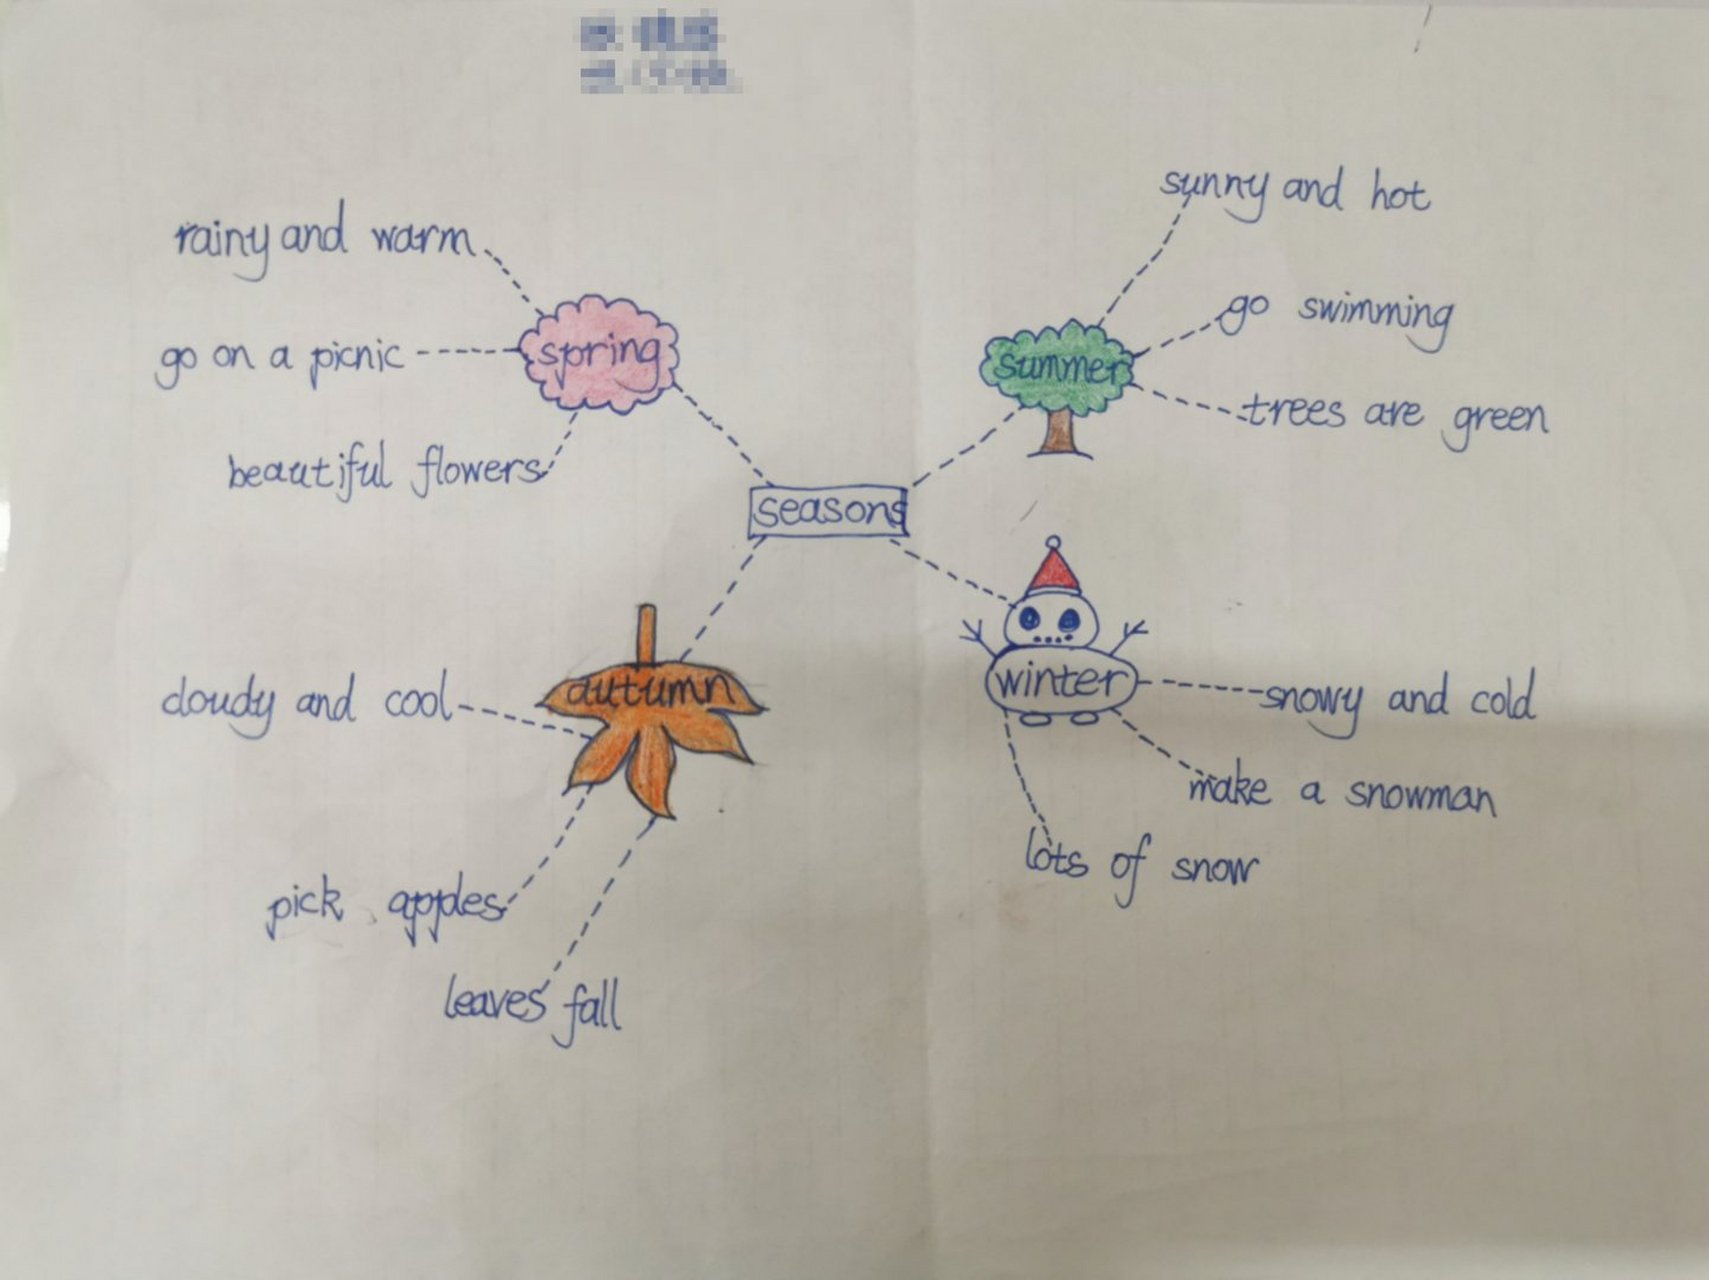 rainy and warm
go on a picnic
beautiful flowers
spring
sunny and hot
go swimming
trees are green
summer
seasons
autumn
cloudy and cool
pick apples
leaves fall
winter
snowy and cold
make a snowman
lots of snow